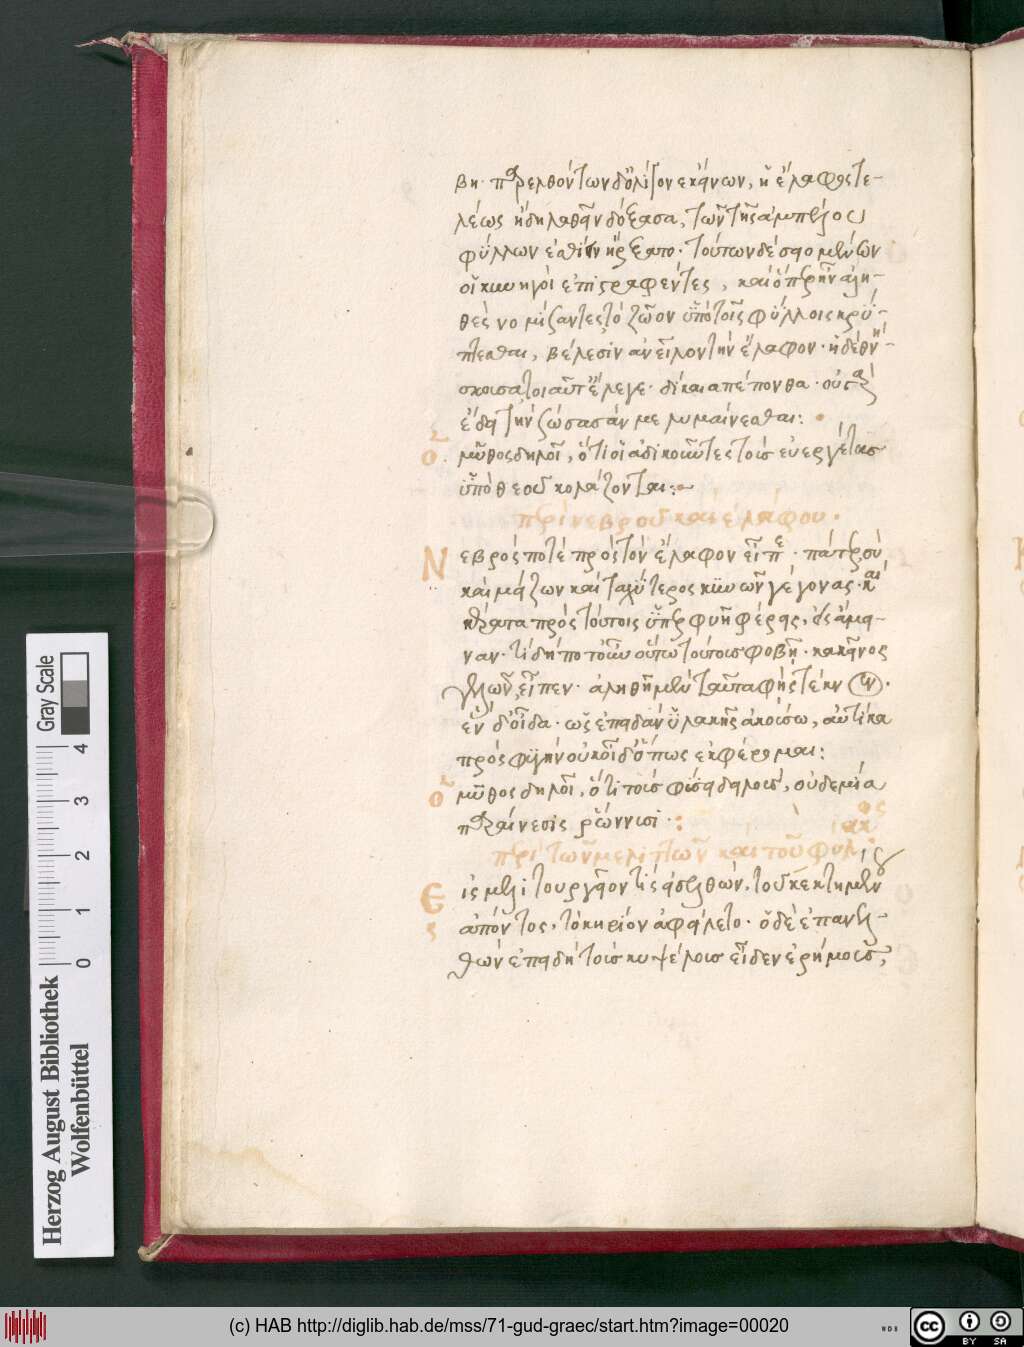 βη· παρελθόντων δ' ὀλίγον ἐκείνων, ἡ ἔλαφος τε-
λέως ἤδη λαθεῖν δόξασα, τῶν τῆς ἀμπέλου
φύλλων ἐσθίειν ἤρξατο· τούτων δὲ σειομένων
οἱ κυνηγοὶ ἐπιστραφέντες, καὶ ὅπερ ἦν ἀλη-
θὲς νομίσαντες τὸ ζῶον ὑπὸ τοῖς φύλλοις κρύ-
πτεσθαι, βέλεσιν ἀνεῖλον τὴν ἔλαφον· ἡ δὲ θνή-
σκουσα τοιαῦτ' ἔλεγε· δίκαια πέπονθα· οὐ γὰρ
ἔδει τὴν σώσασάν με λυμαίνεσθαι:
ὁ μῦθος δηλοῖ, ὅτι οἱ ἀδικοῦντες τοὺς εὐεργέτας
ὑπὸ θεοῦ κολάζονται:
περὶ νεβροῦ καὶ ἐλάφου·
Νεβρός ποτε πρὸς τὸν ἔλαφον εἶπε· πάτερ, σὺ
καὶ μείζων καὶ ταχύτερος κυνῶν γέγονας· καὶ
κέρατα πρὸς τούτοις ὑπερφυῆ φέρεις, εἰς ἄμυ-
ναν· τί δήποτ' οὖν οὕτω τούτους φοβῇ· κἀκεῖνος
γελῶν εἶπεν· ἀληθῆ μὲν ταῦτα φὴς τέκνον·
ἓν δ' οἶδα· ὡς ἐπειδὰν ὑλακῆς ἀκούσω, αὐτίκα
πρὸς φυγὴν οὐκ οἶδ' ὅπως ἐκφέρομαι:
ὁ μῦθος δηλοῖ, ὅτι τοὺς φύσει δειλούς, οὐδεμία
παραίνεσις ῥώννυσι·:
περὶ τῶν μελιττῶν καὶ τοῦ φύλακος
Εἰς μελιτουργεῖόν τις εἰσελθών, τοῦ κεκτημένου
ἀπόντος, τὸ κηρίον ἀφείλετο· ὁ δὲ ἐπανελ-
θὼν ἐπειδὴ τοὺς κυψέλους εἶδεν ἐρήμους,
Herzog August Bibliothek
Wolfenbüttel
Gray Scale
0 1 2 3 4
(c) HAB http://diglib.hab.de/mss/71-gud-graec/start.htm?image=00020
WDB
cc BY SA